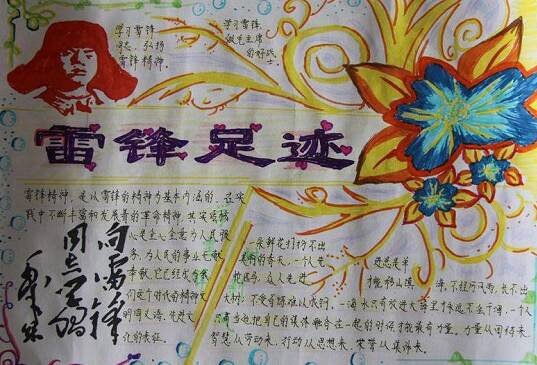 学习雷锋
同志 弘扬
雷锋精神。
学习雷锋,
做毛主席
的好战
士。
雷锋足迹
雷锋精神,是以雷锋的精神为基本内涵的、在实
践中不断丰富和发展着的革命精神,其实质
心是全心全意为人民服
务,为人民的事业无
奉献,它已经成为我
们这个时代的精神文
明同义语、先进文
化的表征。
向雷锋
同志学习
一朵鲜花打扮不出
美丽的春天,一个人
先进总是单
才能移山填
海。不经风雨,长不出
大树,不受百炼难以成钢。一滴水只有放进大海里才永远不会干涸,一个人
只有当他把自己和集体融合在一起的时候才能最有力量。力量从团结来,
智慧从劳动来,行动从思想来,荣誉从集体来。